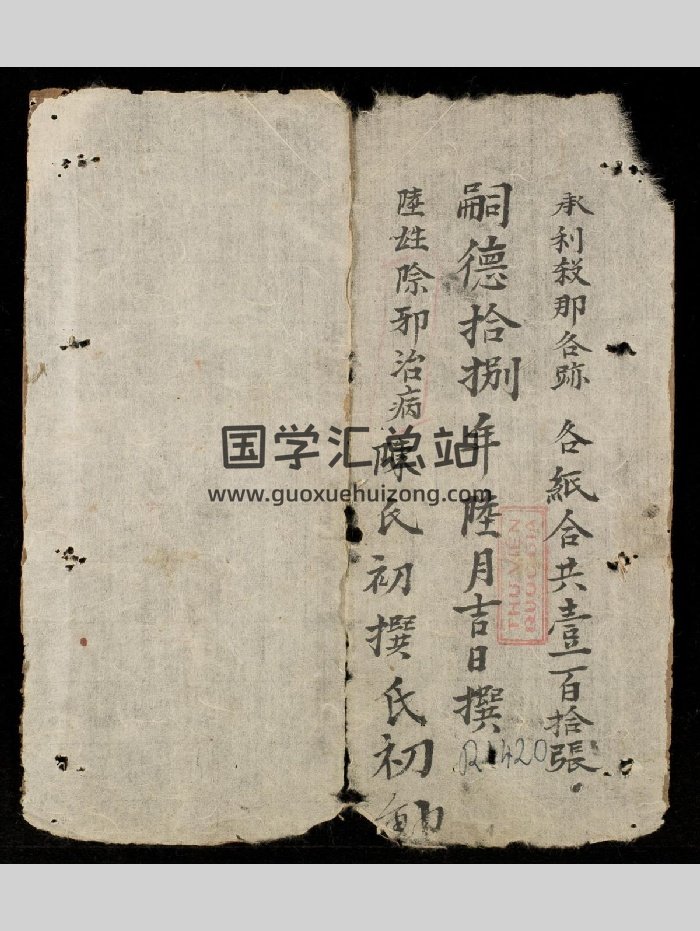 承利殺那各跡 各紙合共壹百拾張
嗣德拾捌年陸月吉日撰
陸姓除邪治病 陳氏初撰氏初
THƯ VIỆN
QUỐC GIA
R1420
国学汇总站
www.guoxuehuizong.com